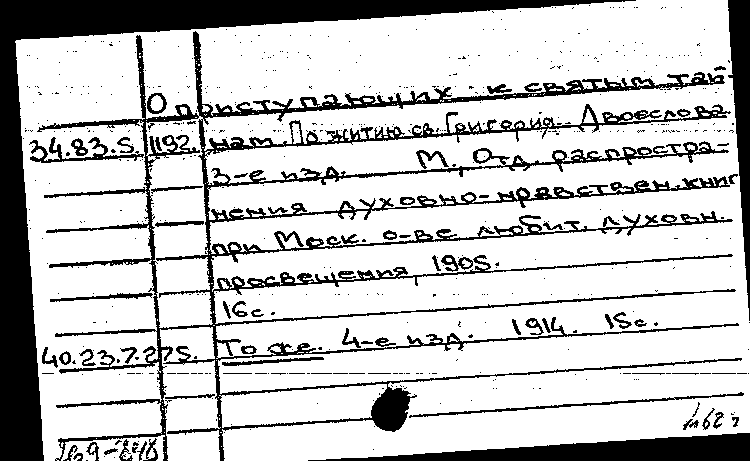 О приступающих к святым тай-
34.83.5. 1192. нам. По житию св. Григория Двоеслова
3-е изд. М., Отд. распростра-
нения духовно-нравствен. книг
при Моск. о-ве любит. духовн.
просвещения, 1905.
16с.
40.23.7.275. То же. 4-е изд. 1914. 15с.